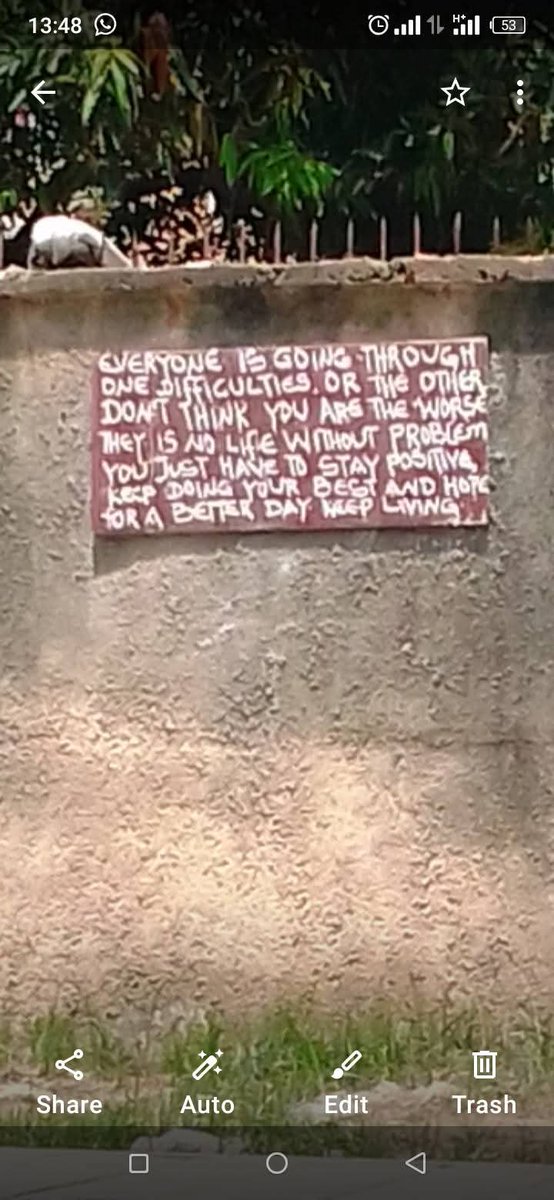 13:48
H+
53
EVERYONE IS GOING THROUGH
ONE DIFFICULTIES. OR THE OTHER
DON'T THINK YOU ARE THE WORSE
THEY IS NO LIFE WITHOUT PROBLEM
YOU JUST HAVE TO STAY POSITIVE,
KEEP DOING YOUR BEST AND HOPE
FOR A BETTER DAY KEEP LIVING
Share
Auto
Edit
Trash